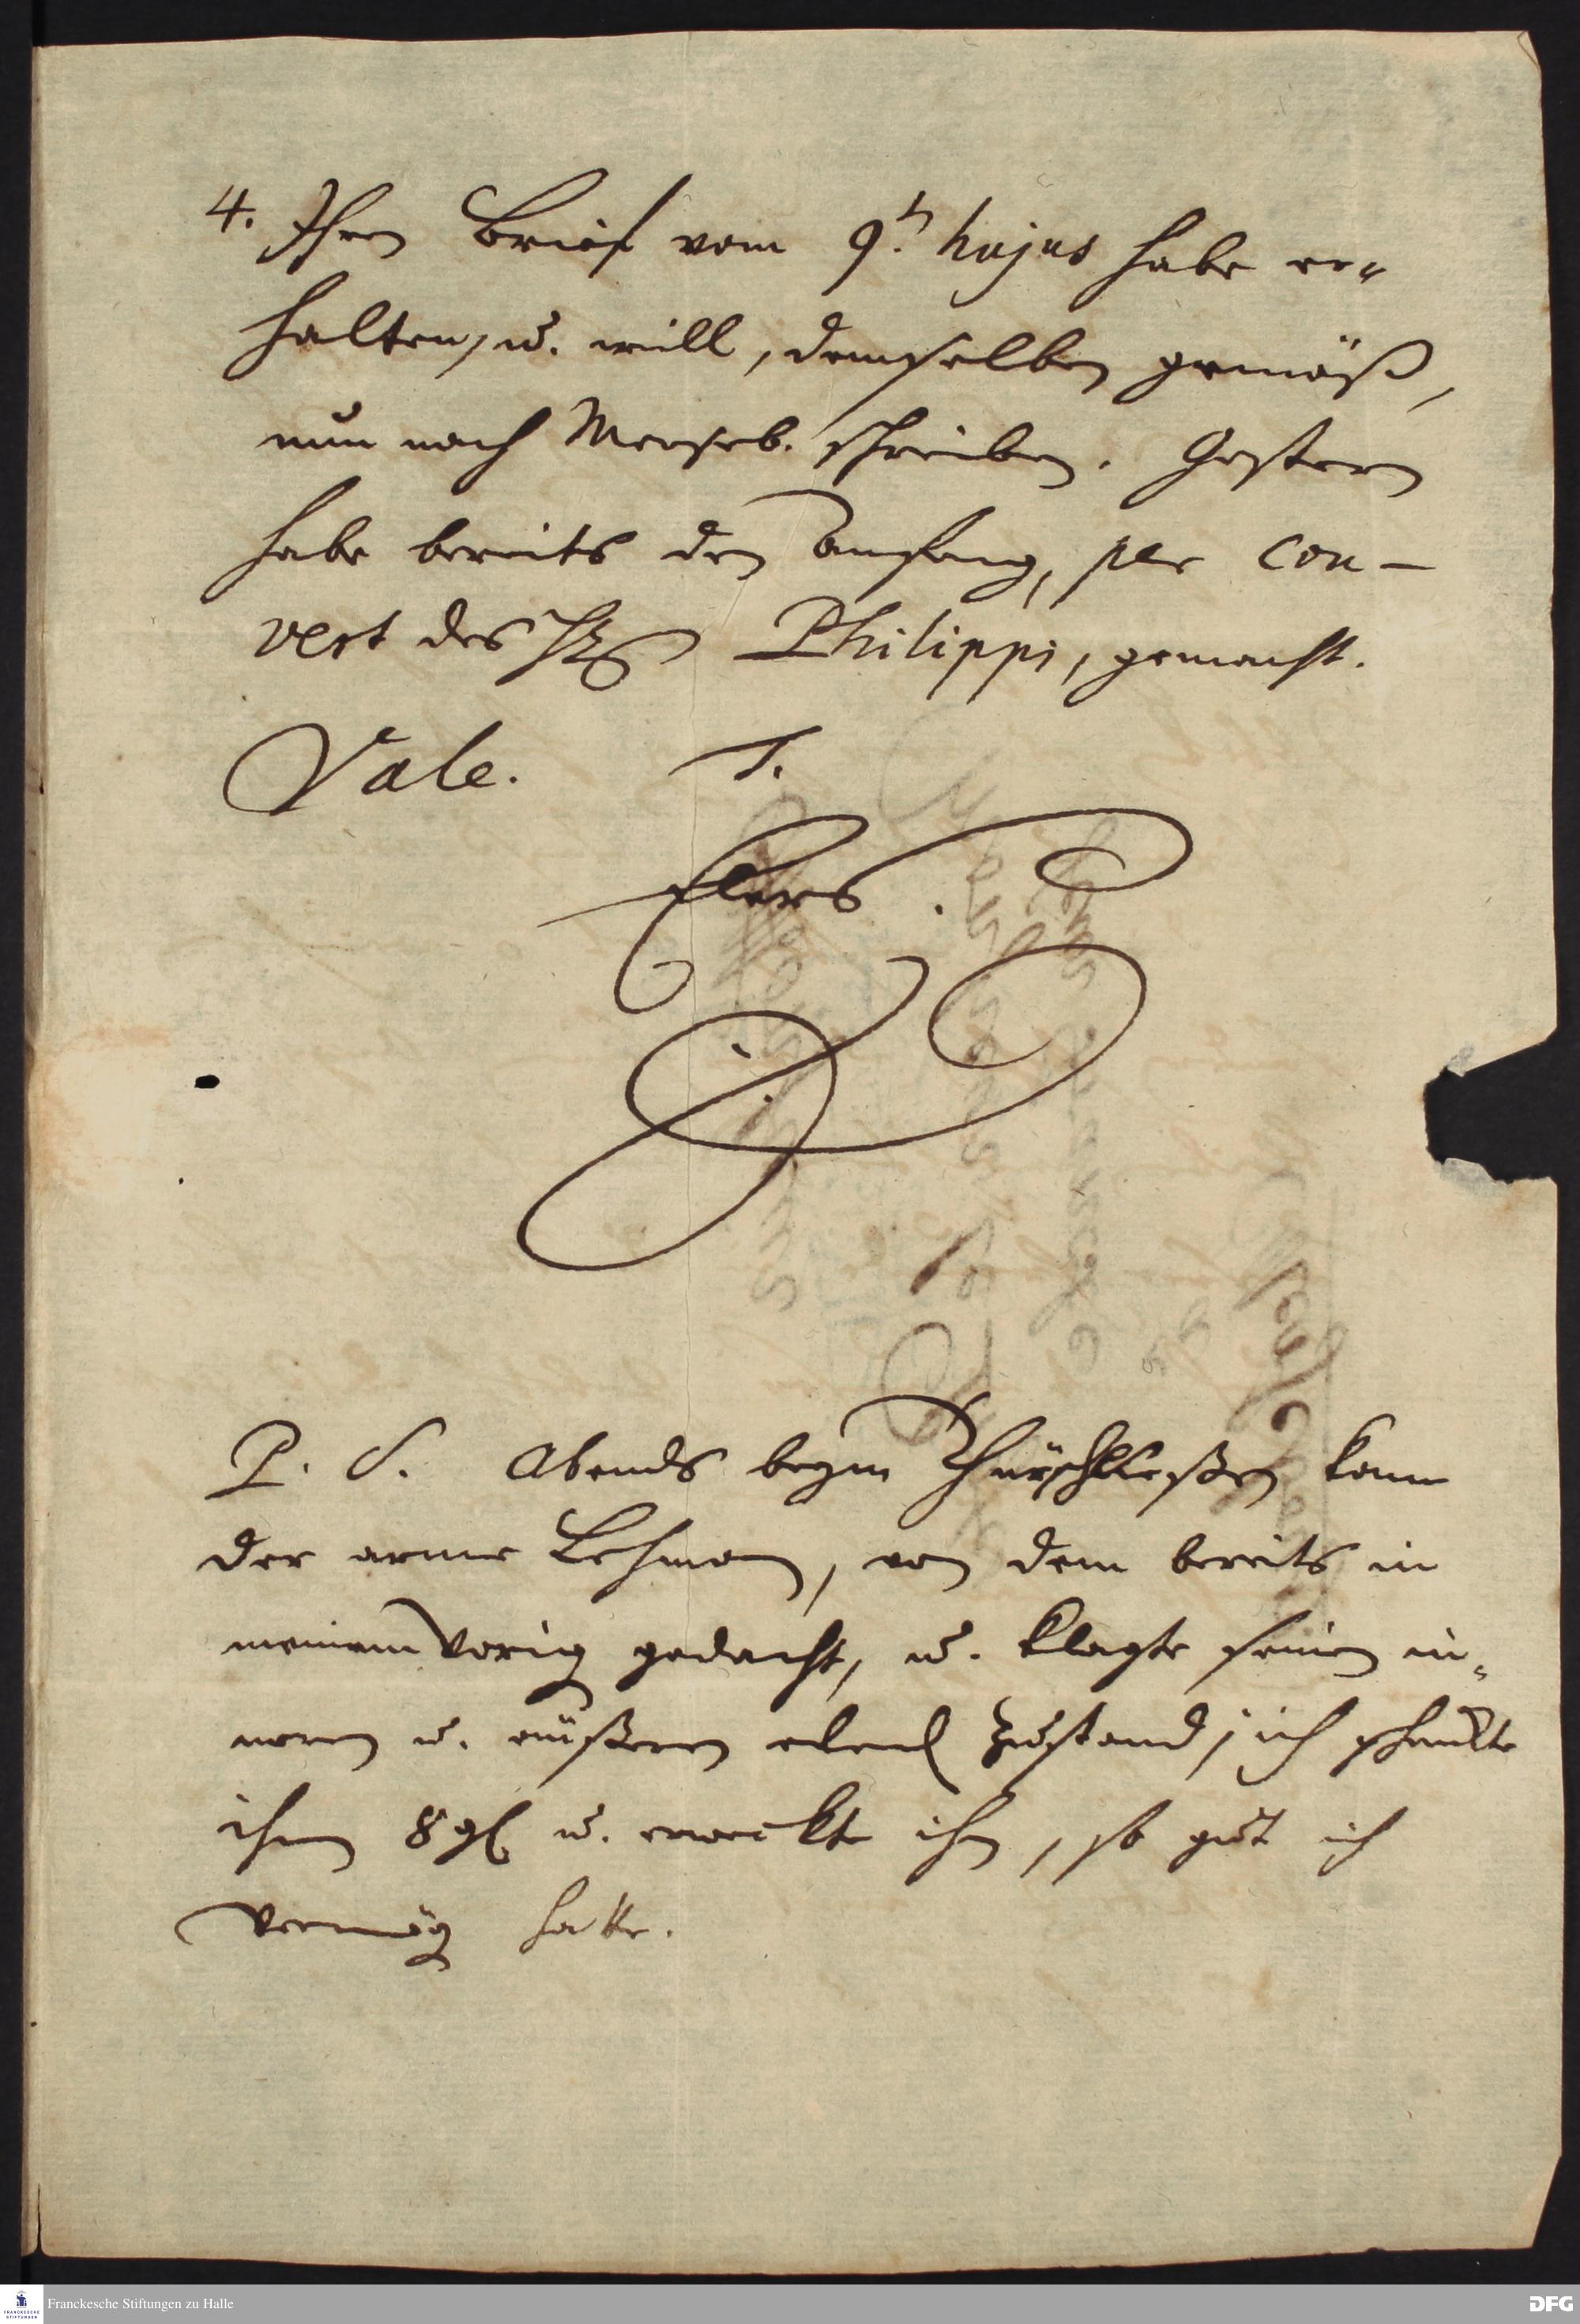 4. Ihren Brief vom 9.t hujus habe er-
halten, u. will, demselben gemäß,
nun nach Merseb. schreiben. Gestern
habe bereits den Anfang, per Cou-
vert des H Philippi, gemacht.
Vale. T.
Elers.
P. S. Abends beym Thürschließen kam
der arme Lehman, von dem bereits in
meinem vorig gedacht, u. klagte seinen in-
neren u. äußeren elend Zustand; ich schenkte
ihm 8 gl u. erweckte ihn, so gut ich
vermög hatte.
Franckesche Stiftungen zu Halle
DFG